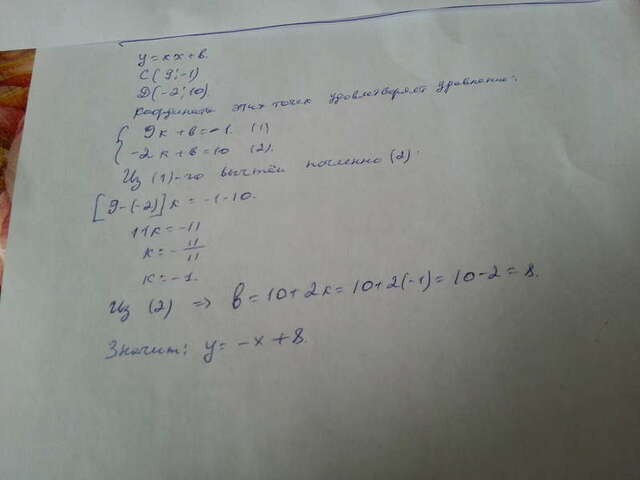 y = кx + в.
C(9; -1)
D(-2; 10).
Координаты этих точек удовлетворяют уравнению:
{ 9к + в = -1. (1)
-2к + в = 10 (2).
Из (1)-го вычтем почленно (2):
[9-(-2)]к = -1-10.
11к = -11
к = -11/11
к = -1.
Из (2) => в = 10 + 2к = 10 + 2(-1) = 10 - 2 = 8.
Значит: y = -x + 8.